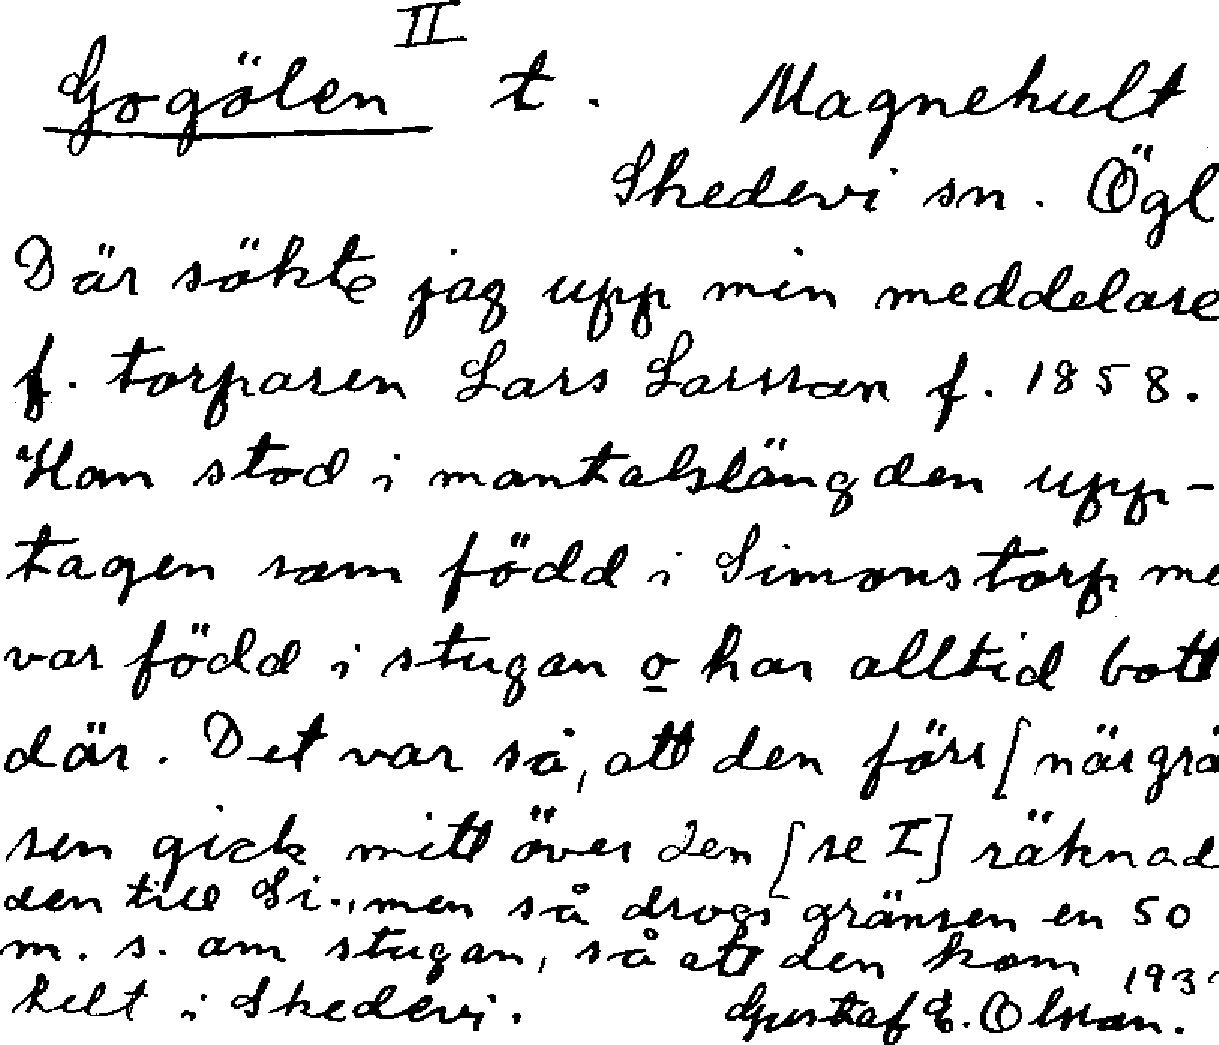 II
Gogölen t. Magnehult
Skedevi sn. Ögl
Där sökte jag upp min meddelare
f. torparen Lars Larsson f. 1858.
Han stod i mantalslängden upp-
tagen som född i Simonstorp me
var född i stugan o har alltid bott
där. Det var så, att den förr [närgrä
sen gick mitt över den [se I] räknad
den till Si., men så drogs gränsen en 50
m. s. om stugan, så att den kom
helt i Skedevi. Gustaf E. Olsson. 193